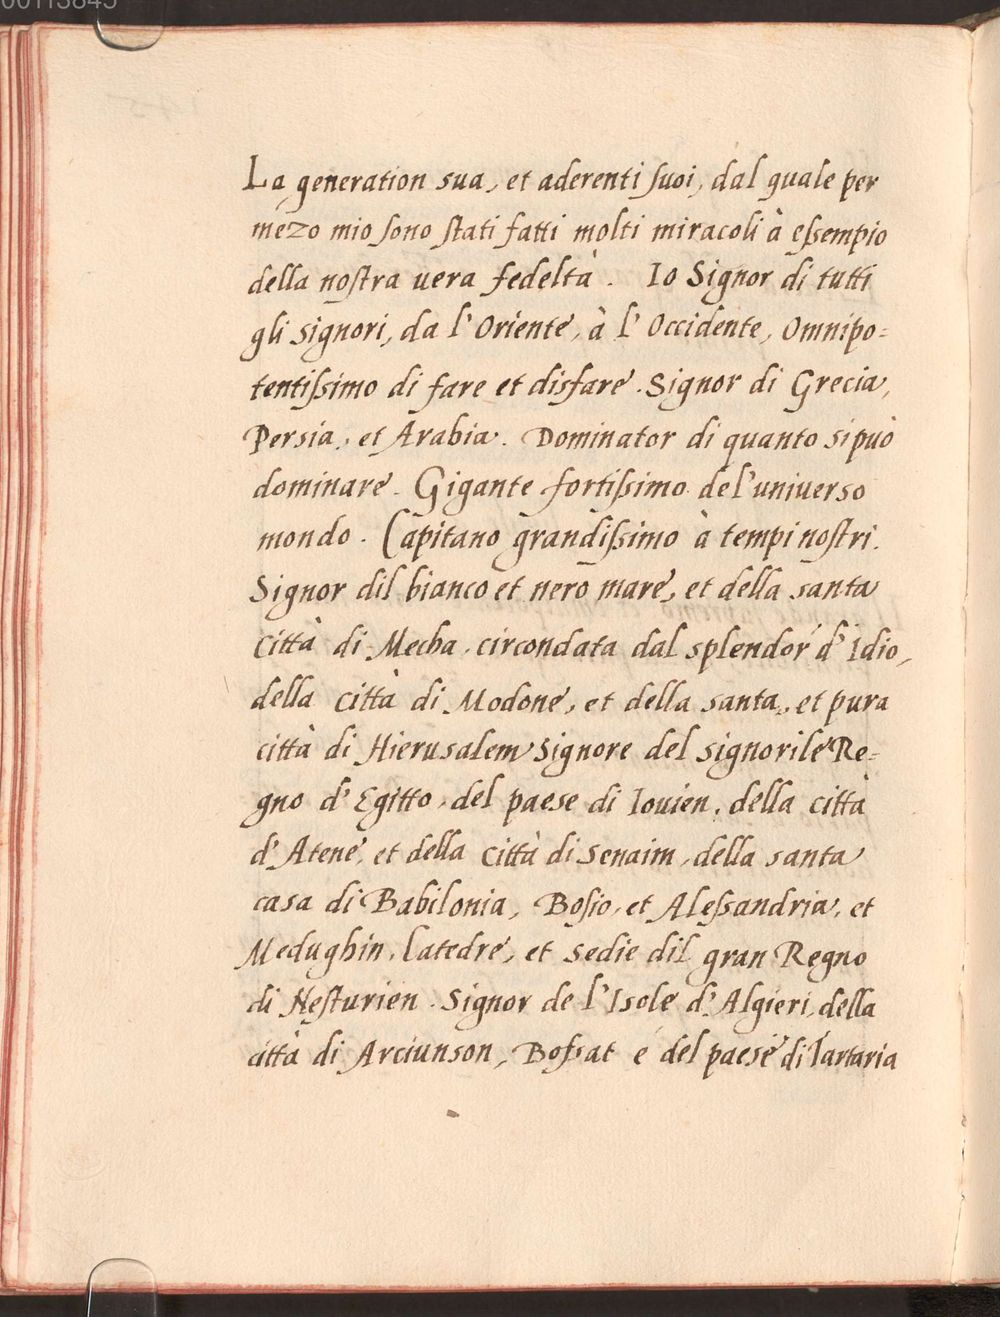 00113845
La generation sua, et aderenti suoi, dal quale per
mezo mio sono stati fatti molti miracoli à essempio
della nostra uera fedeltà. Io Signor di tutti
gli signori, da l'Oriente, à l'Occidente, Omnipo=
tentissimo di fare et disfare. Signor di Grecia,
Persia, et Arabia. Dominator di quanto si può
dominare. Gigante fortissimo del'uniuerso
mondo. Capitano grandissimo à tempi nostri.
Signor dil bianco et nero mare, et della santa
Città di Mecha, circondata dal splendor d'Idio,
della città di Modone, et della santa, et pura
città di Hierusalem Signore del signorile Re=
gno d'Egitto, del paese di Iouien, della città
d'Atene, et della Città di Senaim, della santa
casa di Babilonia, Bosio, et Alessandria, et
Medughin, Catedre, et Sedie dil gran Regno
di Nesturien. Signor de l'Isole d'Algieri, della
città di Arciunson, Bossat e del paese di Tartaria